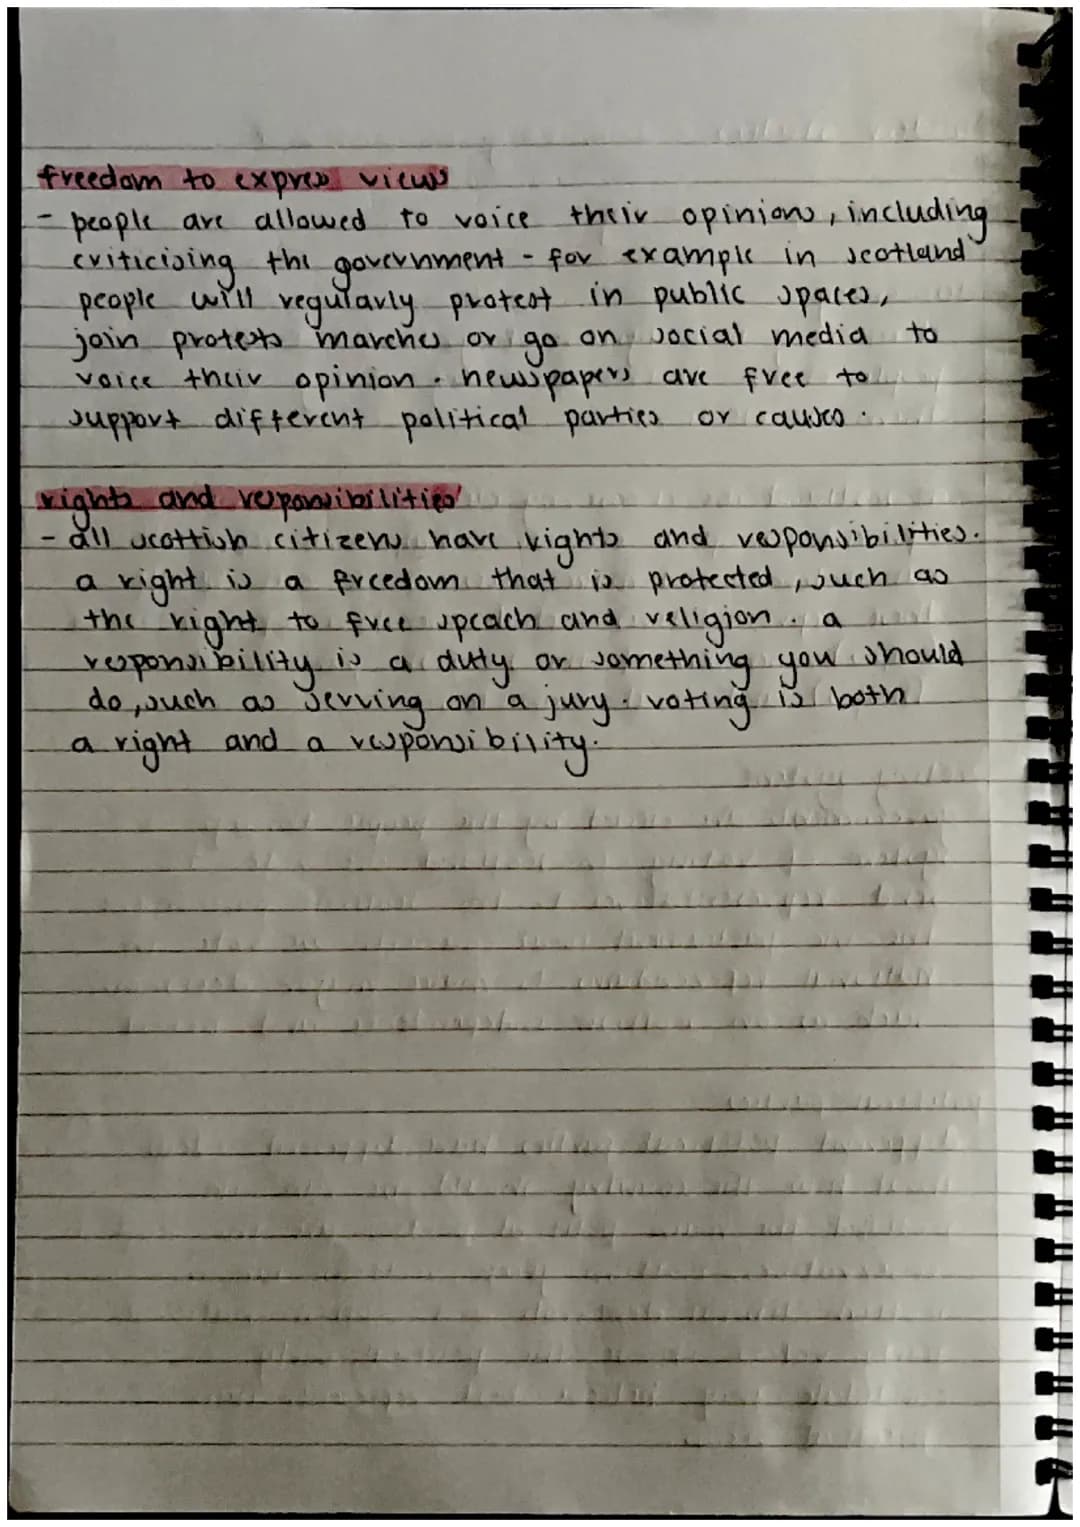 freedom to express views
- people are allowed to voice their opinions, including
criticising the government - for example in scotland
people will regularly protest in public spaces,
join protests marches or go on social media to
voice their opinion. newspapers are free to
support different political parties or causes.
rights and responsibilities
- all scottish citizens have rights and responsibilities.
a right is a freedom that is protected, such as
the right to free speach and religion. a
responsibility is a duty or something you should
do, such as serving on a jury. voting is both
a right and a responsibility.